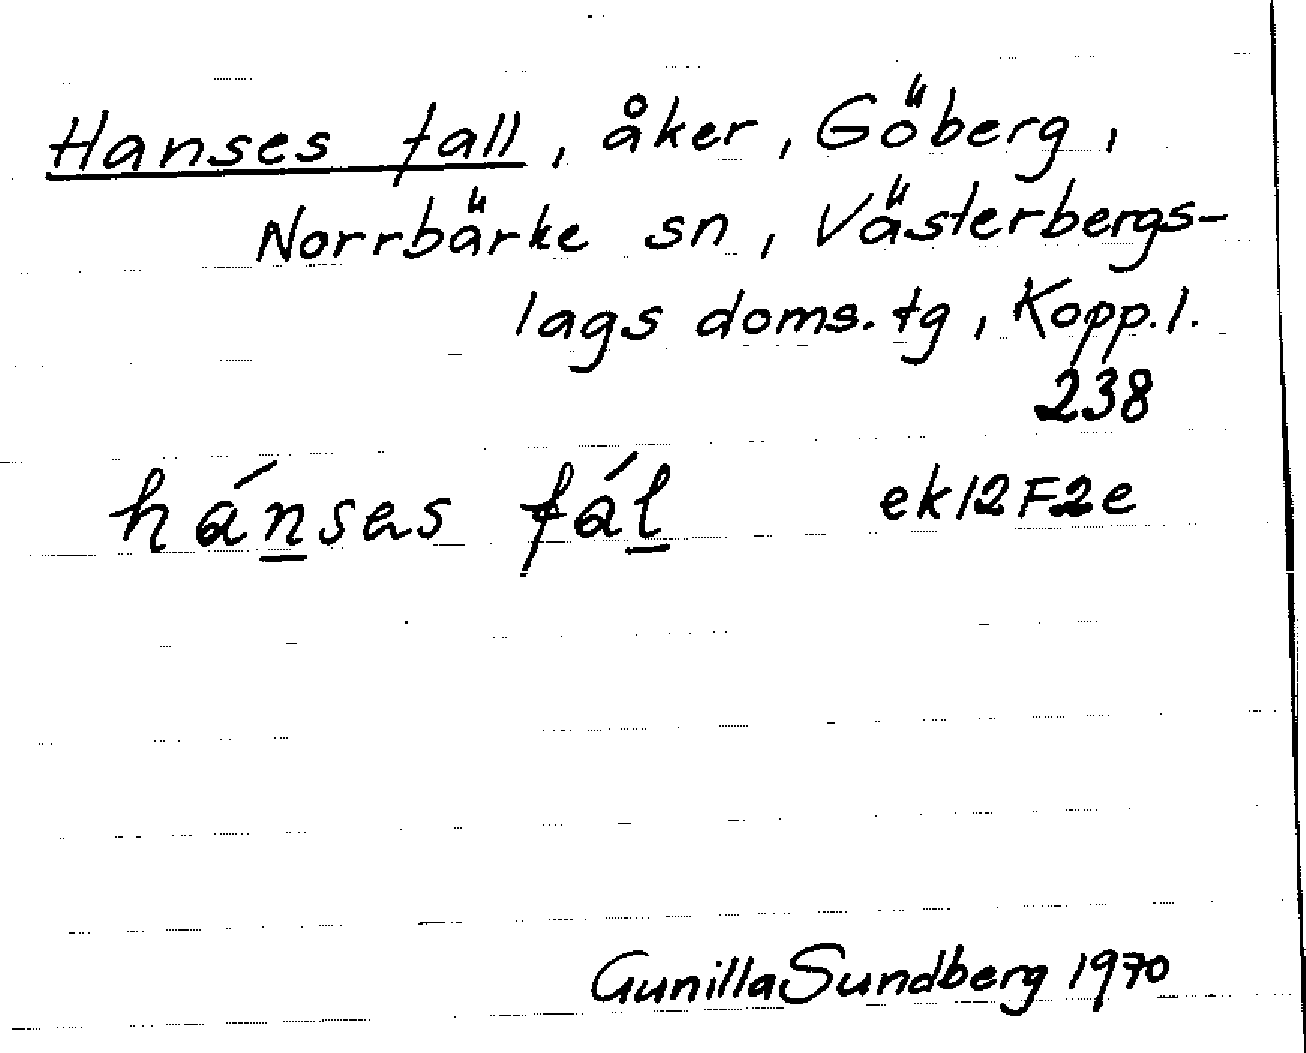 Hanses fall, åker, Göberg,
Norrbärke sn, Västerbergs-
lags doms.tg, Kopp.l.
238
hánsas fál ek12F2e
Gunilla Sundberg 1970